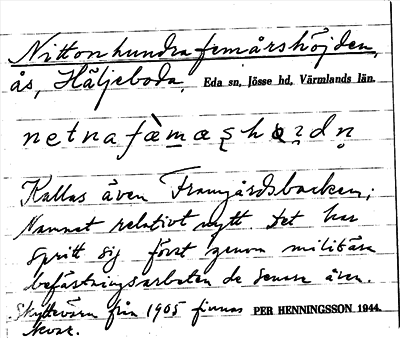 Nittonhundrafemårshöjden,
ås, Häljeboda. Eda sn, Jösse hd, Värmlands län.
netnafæ̀mæʂhɷʐdn̥
Kallas även Framgårdsbacken;
Namnet relativt nytt. Det har
spritt sig först genom militära
befästningsarbeten de senare åren.
Skyttevärn från 1905 finnas PER HENNINGSSON 1944.
kvar.